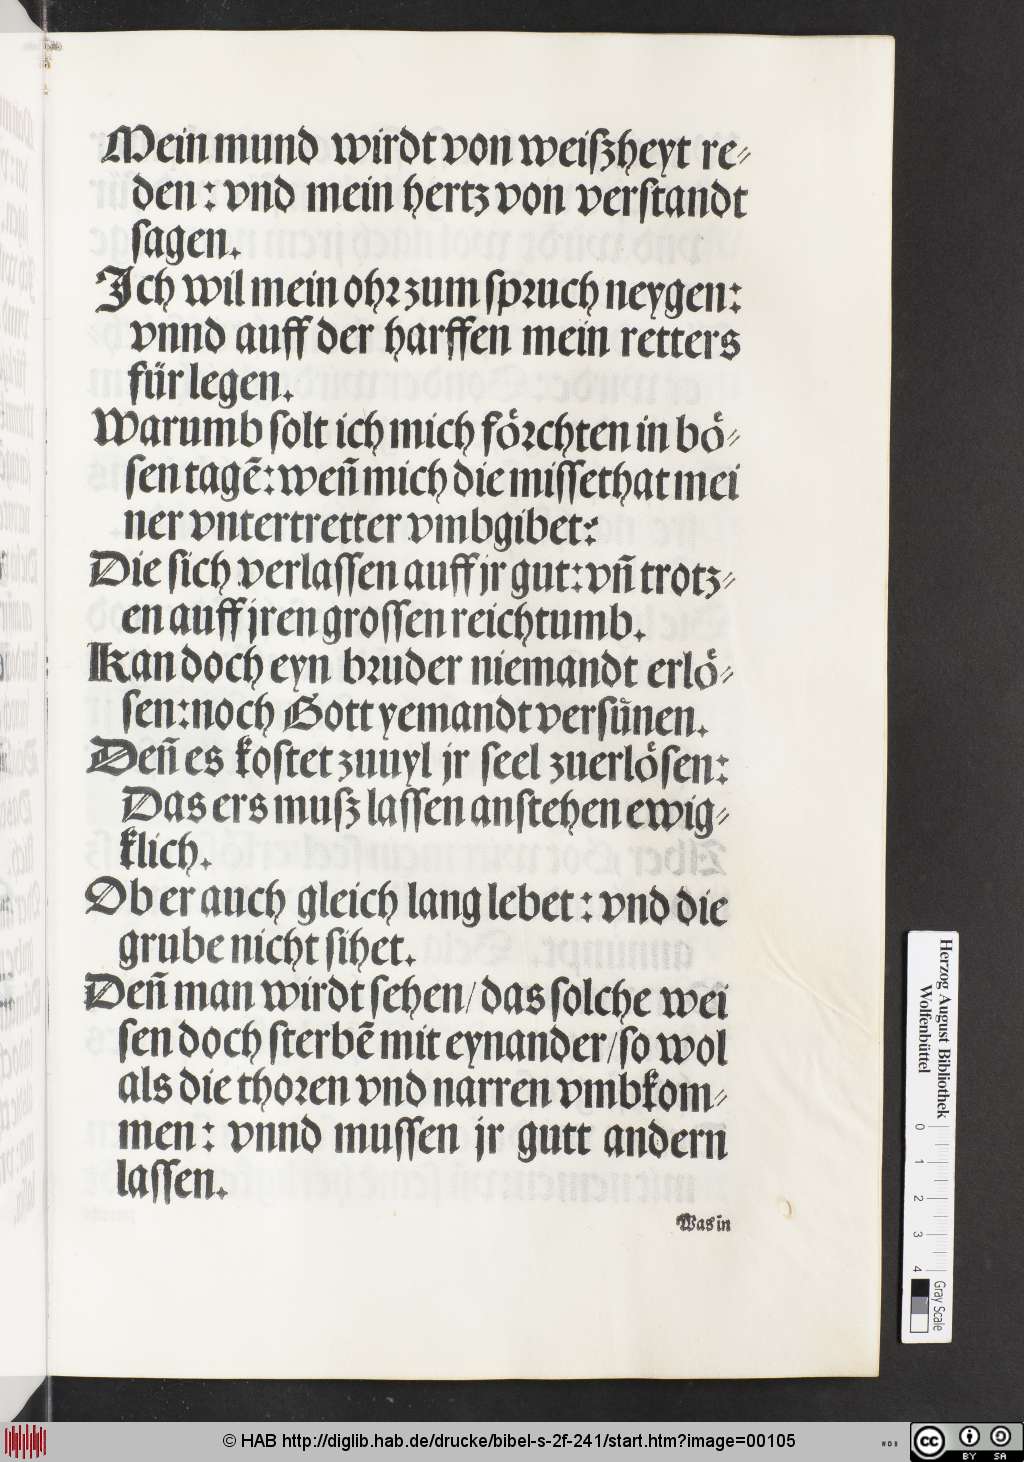 Mein mund wirdt von weiſzheyt re⸗
den: vnd mein hertz von verſtandt
ſagen.
Ich wil mein ohꝛ zum ſpꝛuch neygen:
vnnd auff der harffen mein retters
für legen.
Warumb ſolt ich mich foͤꝛchten in boͤ⸗
ſen tagẽ: weñ mich die miſſethat mei
ner vntertretter vmbgibet:
Die ſich verlaſſen auff jr gut: vñ trotz⸗
en auff jren groſſen reichtumb.
Kan doch eyn bꝛuder niemandt erloͤ⸗
ſen: noch Gott yemandt verſuͤnen.
Deñ es koſtet zuuyl jr ſeel zuerloͤſen:
Das ers muſz laſſen anſtehen ewig⸗
klich.
Ob er auch gleich lang lebet: vnd die
grube nicht ſihet.
Deñ man wirdt ſehen/ das ſolche wei
ſen doch ſterbẽ mit eynander/ ſo wol
als die thoꝛen vnd narren vmbkom⸗
men: vnnd muſſen jr gutt andern
laſſen.
Was in
Herzog August Bibliothek
Wolfenbüttel
0 1 2 3 4
Gray Scale
© HAB http://diglib.hab.de/drucke/bibel-s-2f-241/start.htm?image=00105
WDB
cc BY SA